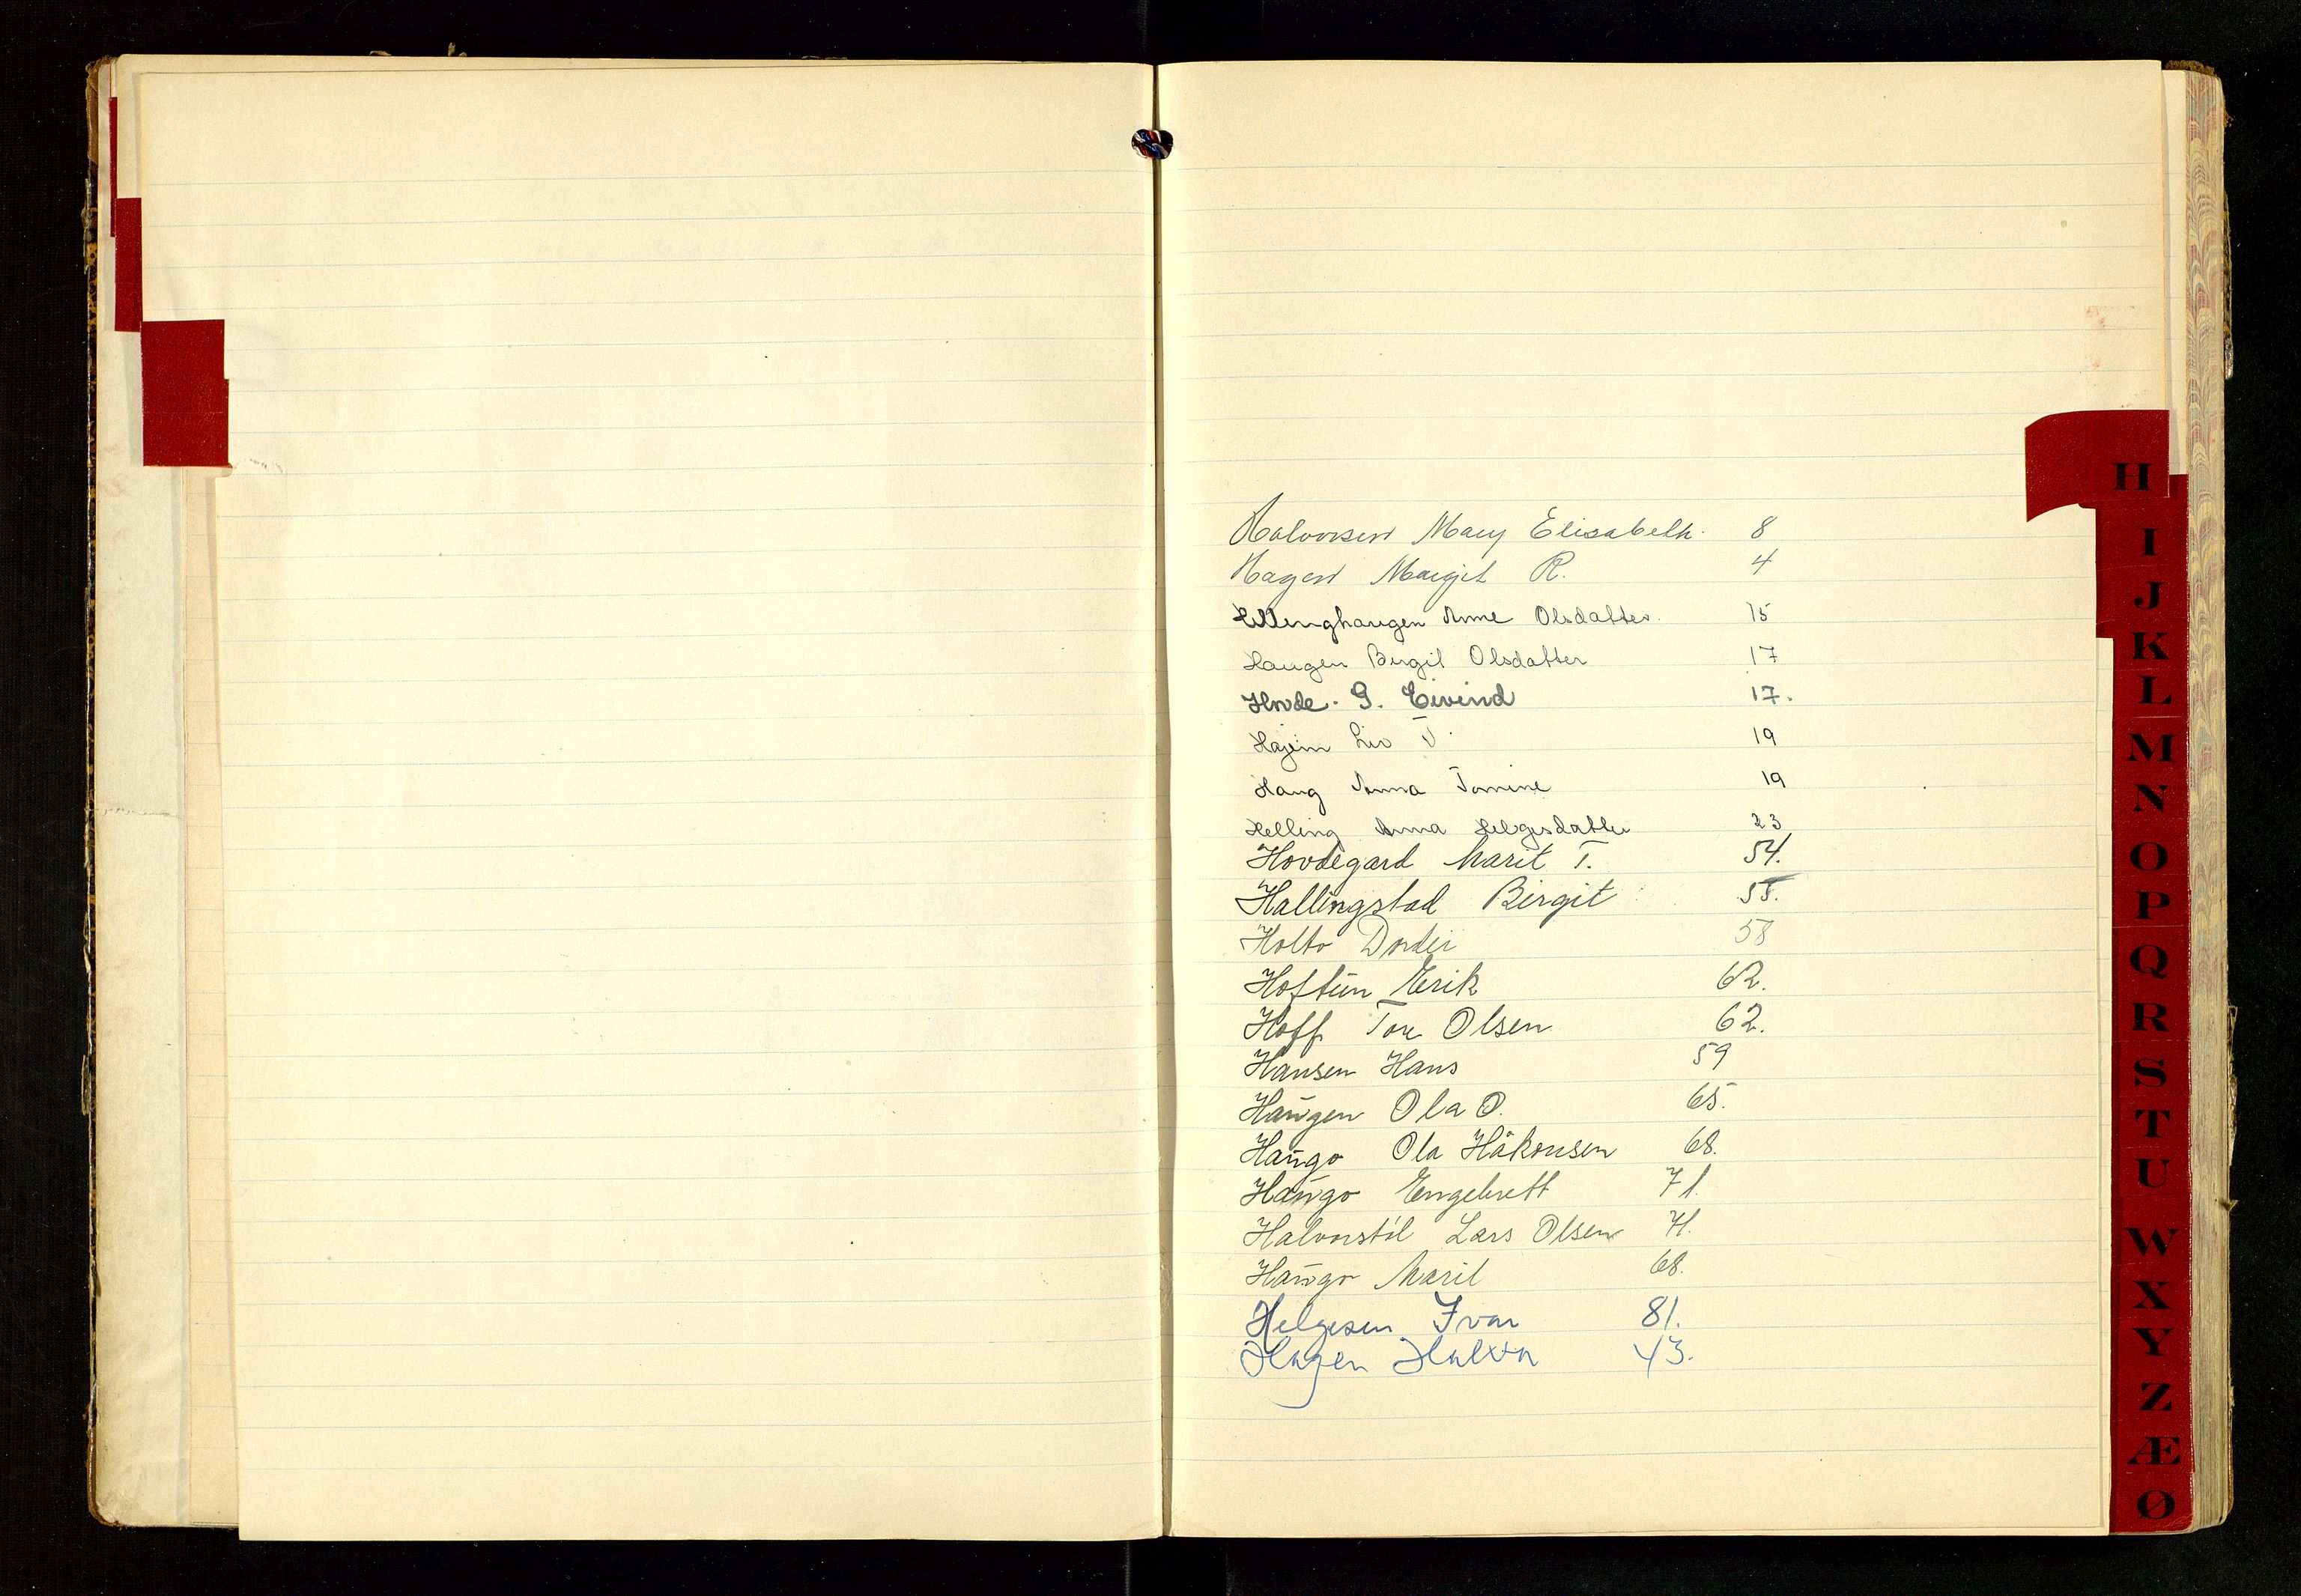 Halvorsen Mary Elisabeth. 8
Hagen Margit R. 4
Hellinghaugen Anne Olsdatter. 15
Haugen Birgit Olsdatter 17
Hovde. G. Eivind 17.
Hagein Liv T. 19
Haug Anna Tomine 19
Helling Anna Helgesdatter 23
Hovdegard Marit T. 54.
Hallingstad Birgit 55.
Holto Dordei 58
Hoftun Erik 62.
Hoff Tore Olsen 62.
Hansen Hans 59
Haugen Ola O. 65.
Haugo Ola Håkonsen 68.
Haugo Engebrett 71.
Halvorstöl Lars Olsen 71.
Haugo Marit 68.
Helgesen Ivar 81.
Hagen Halvor 43.
H
I
J
K
L
M
N
O
P
Q
R
S
T
U
W
X
Y
Z
Æ
Ø